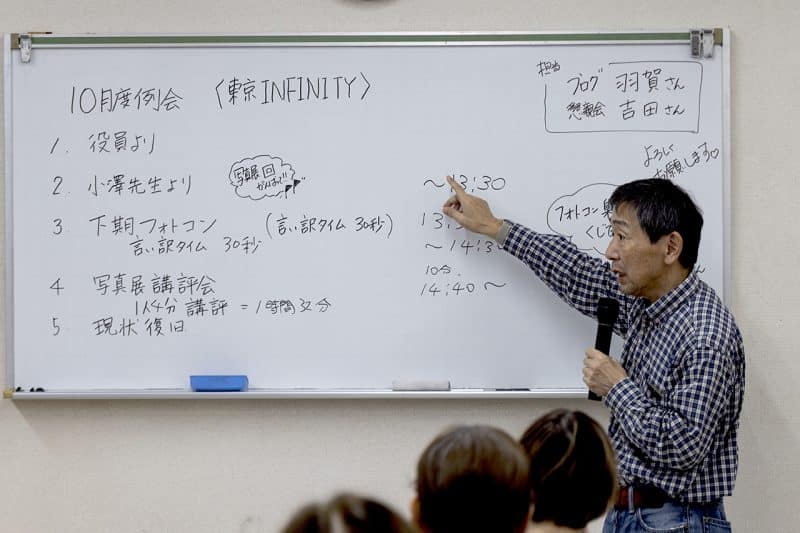 10月度例会 〈東京INFINITY〉
担当
ブログ 羽賀さん
懇親会 吉田さん
よろしく
お願します♡
1. 役員より
2. 小澤先生より
写真展回
~13:30
3. 下期フォトコン (言い訳タイム 30秒)
言い訳タイム 30秒
~14:3
10分.
フォトコン
4 写真展講評会
1人4分 講評 = 1時間32分
14:40~
5. 現状復旧